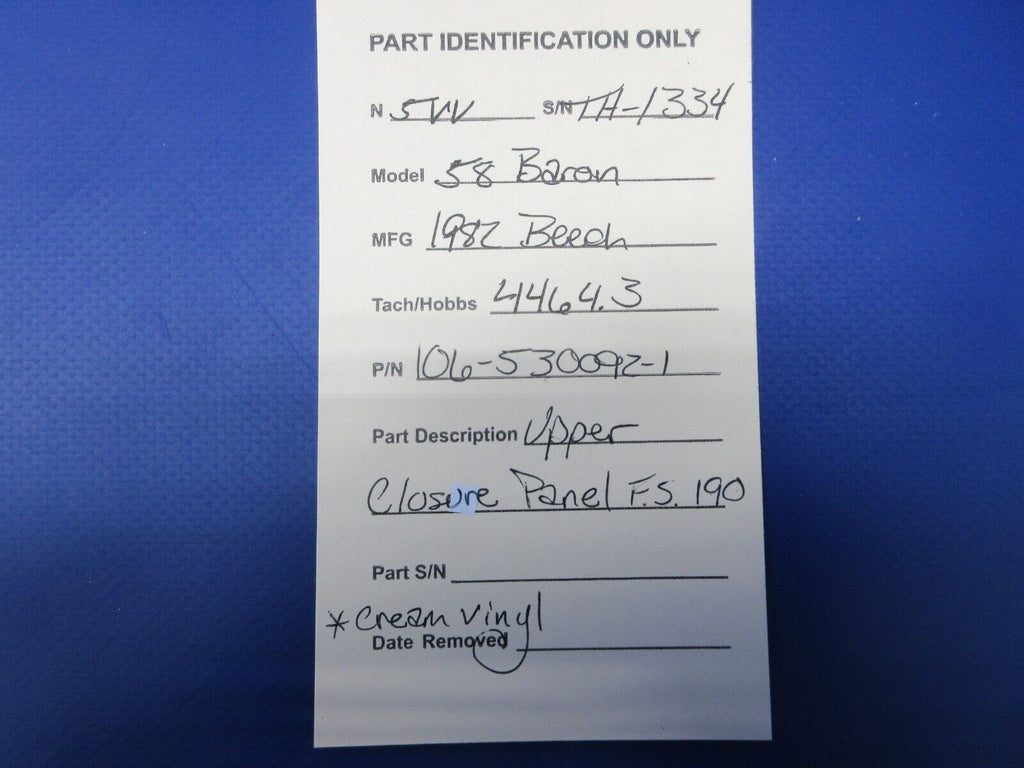 PART IDENTIFICATION ONLY
N 5VV S/N TH-1334
Model 58 Baron
MFG 1982 Beech
Tach/Hobbs 4464.3
P/N 106-530092-1
Part Description Upper
Closure Panel F.S. 190
Part S/N
* Cream vinyl
Date Removed